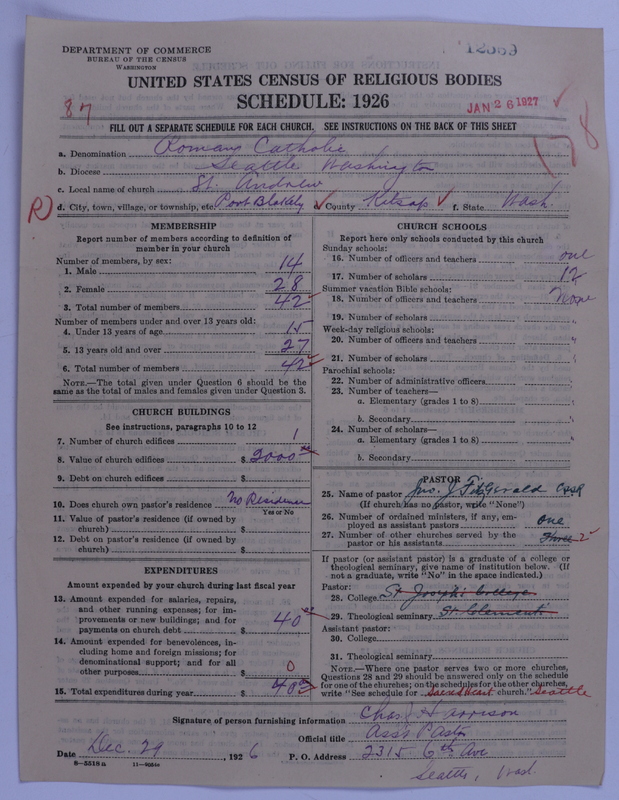 12569
DEPARTMENT OF COMMERCE
BUREAU OF THE CENSUS
WASHINGTON
UNITED STATES CENSUS OF RELIGIOUS BODIES
SCHEDULE: 1926
87
JAN 26 1927
178
FILL OUT A SEPARATE SCHEDULE FOR EACH CHURCH. SEE INSTRUCTIONS ON THE BACK OF THIS SHEET
a. Denomination Roman Catholic
b. Diocese Seattle Washington
c. Local name of church St. Andrew
R) d. City, town, village, or township, etc. Port Blakely e. County Kitsap f. State Wash.
MEMBERSHIP
Report number of members according to definition of
member in your church
Number of members, by sex:
1. Male 14
2. Female 28
3. Total number of members 42
Number of members under and over 13 years old:
4. Under 13 years of age 15
5. 13 years old and over 27
6. Total number of members 42
NOTE.—The total given under Question 6 should be the
same as the total of males and females given under Question 3.
CHURCH BUILDINGS
See instructions, paragraphs 10 to 12
7. Number of church edifices 1
8. Value of church edifices $ 2000
9. Debt on church edifices $
10. Does church own pastor's residence no Residence
Yes or No
11. Value of pastor's residence (if owned by
church) $
12. Debt on pastor's residence (if owned by
church) $
EXPENDITURES
Amount expended by your church during last fiscal year
13. Amount expended for salaries, repairs,
and other running expenses; for im-
provements or new buildings; and for
payments on church debt $ 40
14. Amount expended for benevolences, in-
cluding home and foreign missions; for
denominational support; and for all
other purposes $ 0
15. Total expenditures during year $ 40
CHURCH SCHOOLS
Report here only schools conducted by this church
Sunday schools:
16. Number of officers and teachers one
17. Number of scholars 12
Summer vacation Bible schools:
18. Number of officers and teachers None
19. Number of scholars "
Week-day religious schools:
20. Number of officers and teachers "
21. Number of scholars "
Parochial schools:
22. Number of administrative officers "
23. Number of teachers—
a. Elementary (grades 1 to 8) "
b. Secondary "
24. Number of scholars—
a. Elementary (grades 1 to 8) "
b. Secondary "
PASTOR
25. Name of pastor Jno. J. FitzGerald CSSR
(If church has no pastor, write "None")
26. Number of ordained ministers, if any, em-
ployed as assistant pastors one
27. Number of other churches served by the
pastor or his assistants Three 2
If pastor (or assistant pastor) is a graduate of a college or
theological seminary, give name of institution below. (If
not a graduate, write "No" in the space indicated.)
Pastor:
28. College St Joseph's College
29. Theological seminary St. Clement's
Assistant pastor:
30. College
31. Theological seminary
NOTE.—Where one pastor serves two or more churches,
Questions 28 and 29 should be answered only on the schedule
for one of the churches; on the schedules for the other churches,
write "See schedule for Sacred Heart church." Seattle
Signature of person furnishing information Chas. Harrison
Official title Ass't Pastor
Date Dec. 29, 1926 P. O. Address 2315 6th Ave
8—5518 a 11—9054
Seattle, Wash.